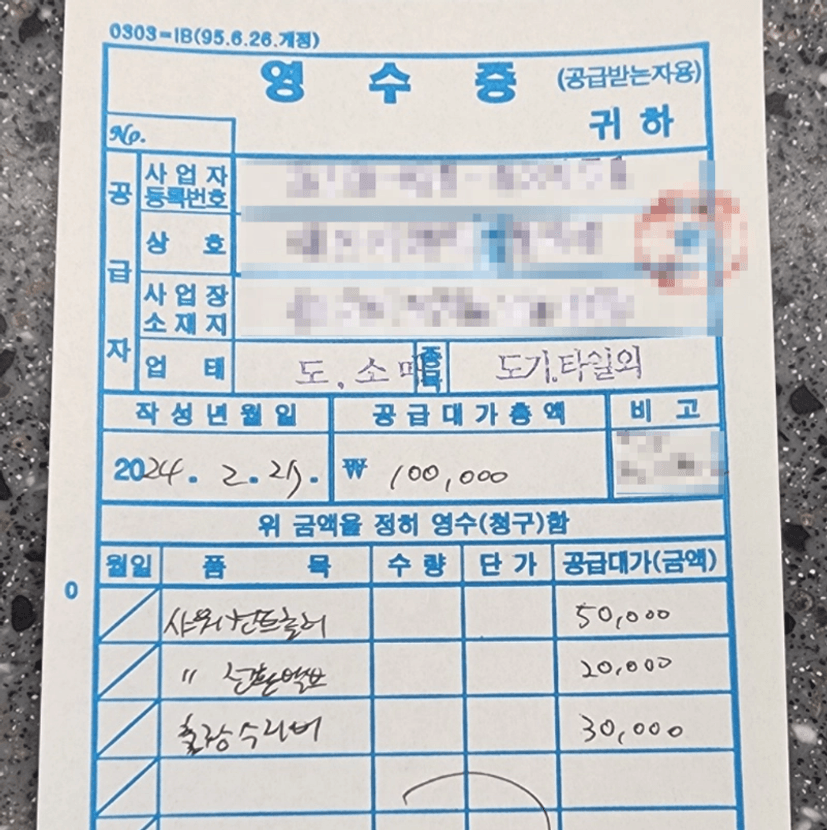 0303-IB(95.6.26.개정)
영 수 증 (공급받는자용)
No. 귀 하
공급자
사업자등록번호
상 호
사업장소재지
업 태 도. 소매 종목 도기.타일외
작성년월일 공급대가총액 비고
2024. 2. ₩ 100,000
위 금액을 정히 영수(청구)함
월일 품 목 수량 단가 공급대가(금액)
샤워핸드홀더 50,000
" 20,000
출장수리비 30,000
0